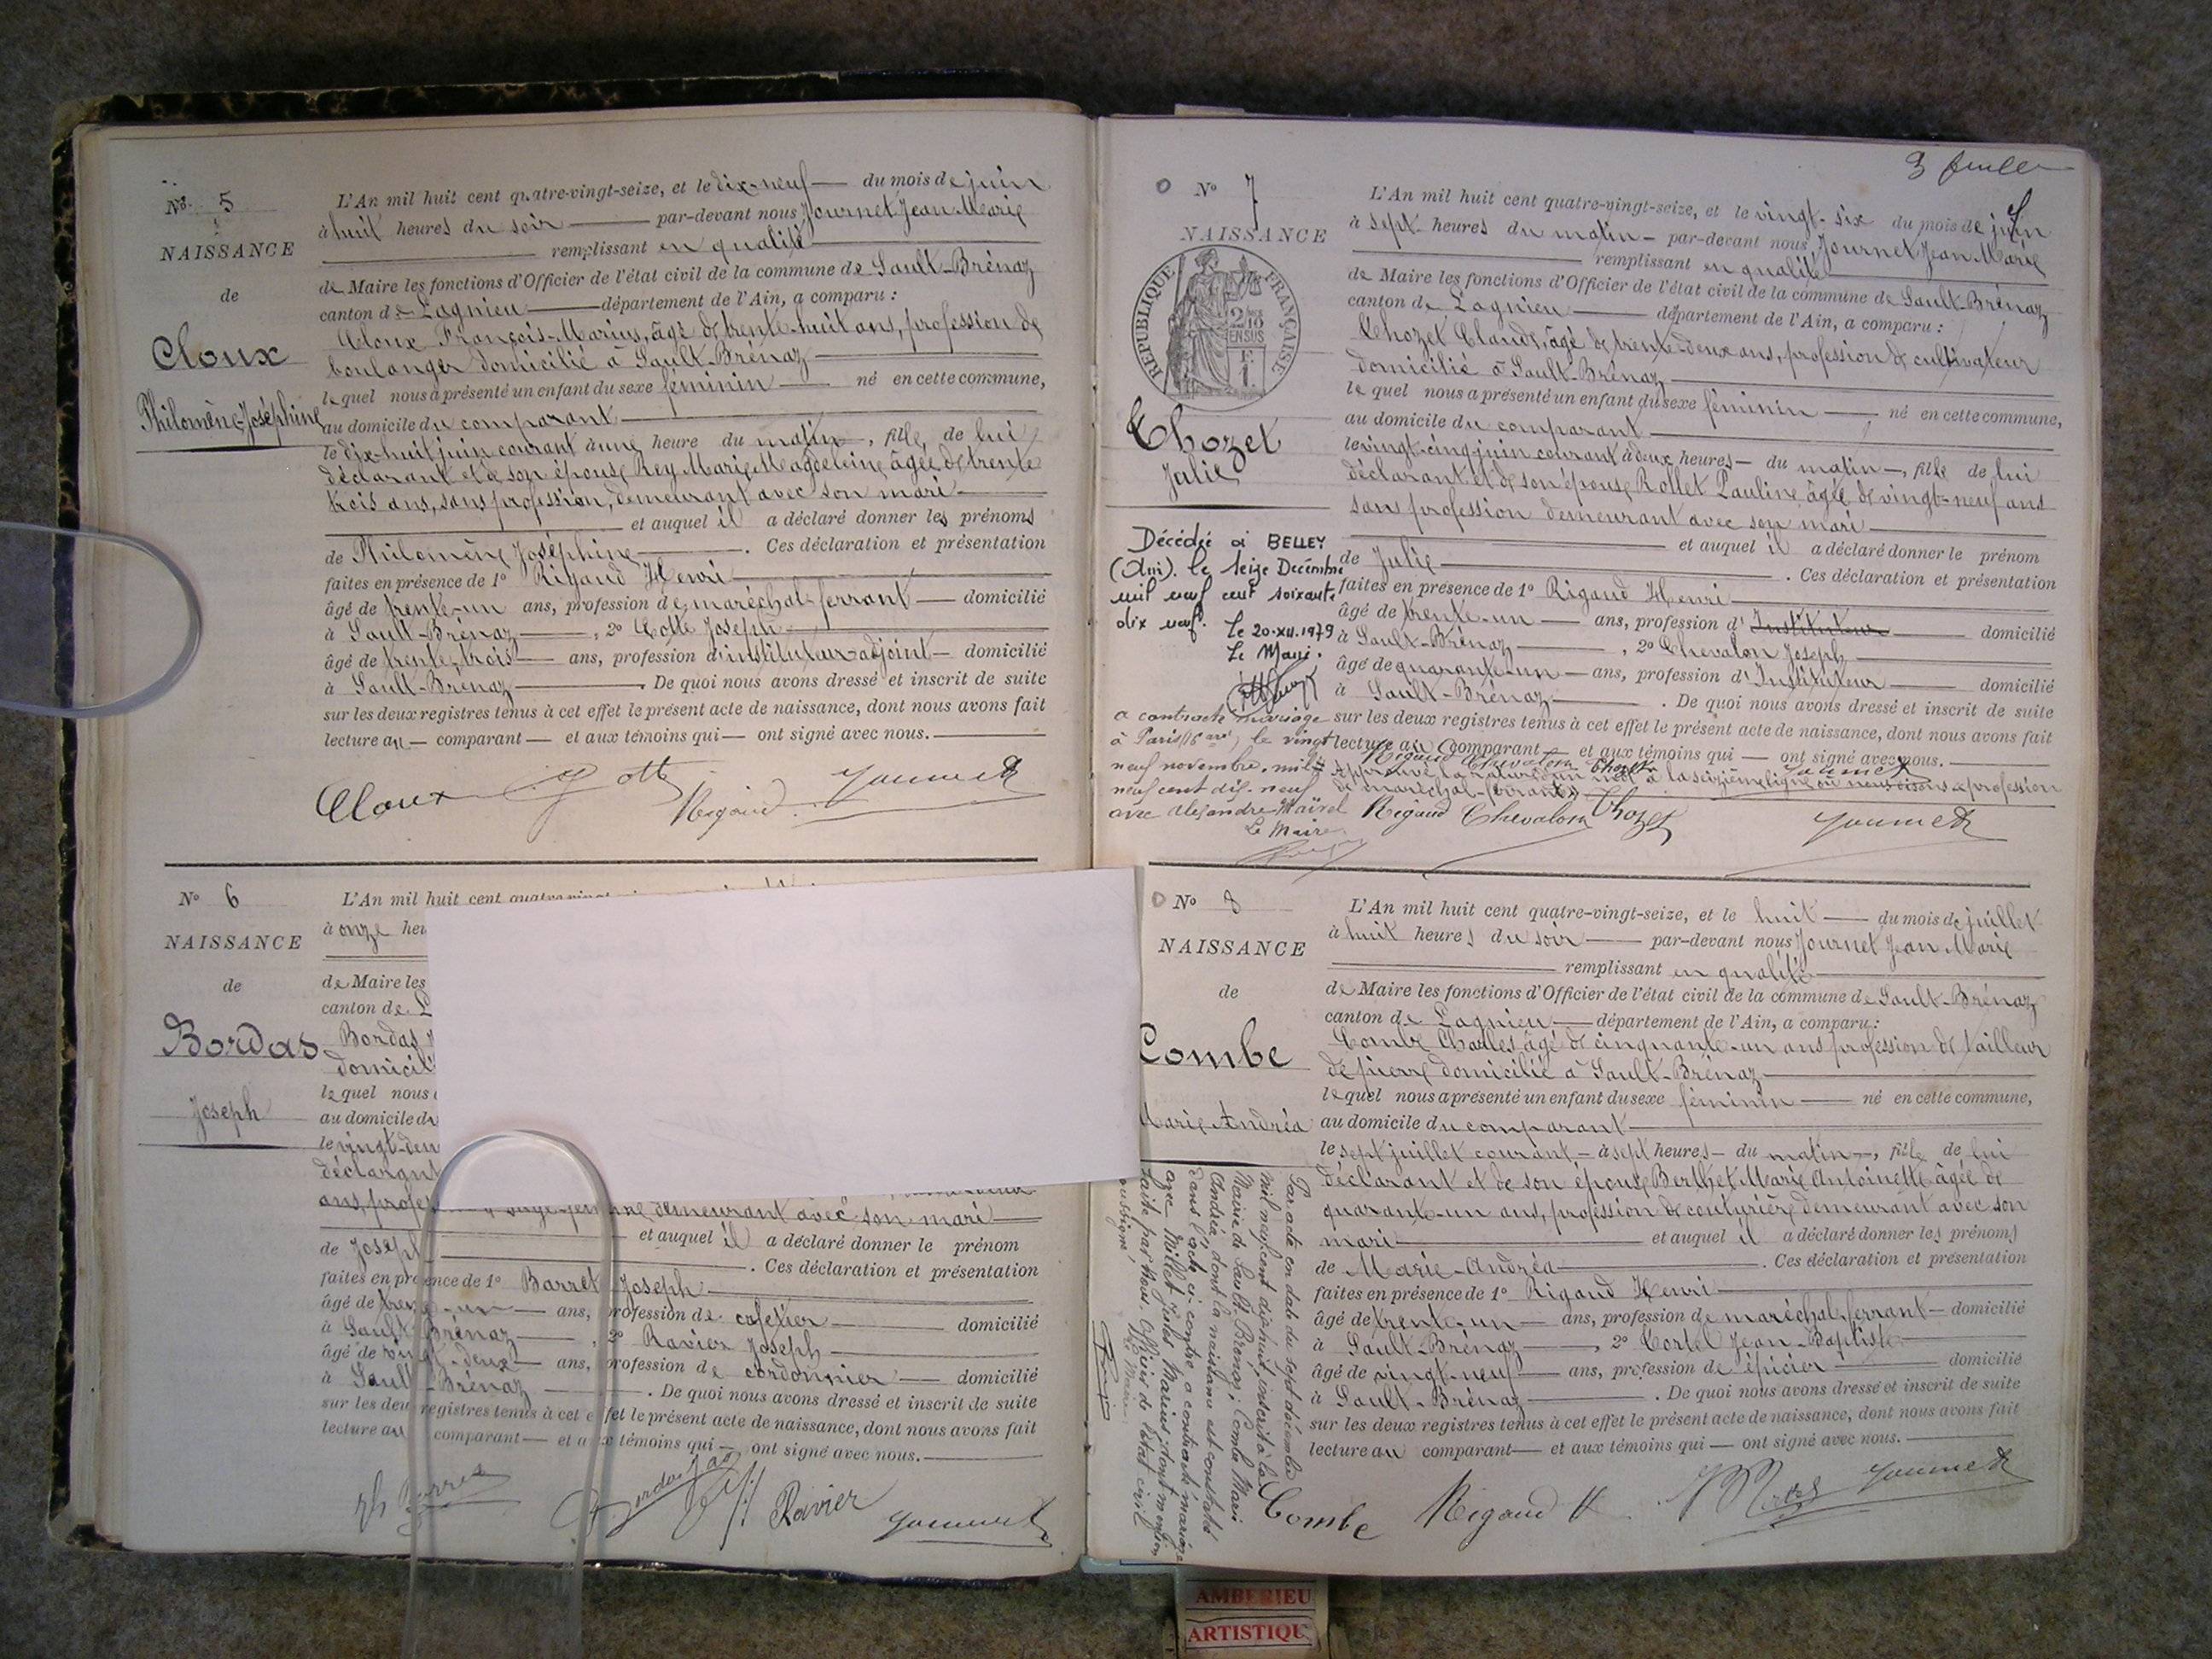 No. 5
NAISSANCE
de
Cloux
Philomène-Joséphine
L'An mil huit cent quatre-vingt-seize, et le dix-neuf du mois de juin
à huit heures du soir par-devant nous Journet Jean Marie
remplissant en qualité
de Maire les fonctions d'Officier de l'état civil de la commune de Sault-Brénaz
canton de Lagnieu département de l'Ain, a comparu :
Cloux François-Marius, âgé de trente-huit ans, profession de
boulanger domicilié à Sault-Brénaz
lequel nous a présenté un enfant du sexe féminin né en cette commune,
au domicile du comparant
le dix-huit juin courant à une heure du matin, fille de lui
déclarant et de son épouse Rey Marie Magdeleine âgée de trente
trois ans, sans profession, demeurant avec son mari
et auquel il a déclaré donner les prénoms
de Philomène Joséphine. Ces déclaration et présentation
faites en présence de 1° Rigaud Henri
âgé de trente-un ans, profession de maréchal-ferrant domicilié
à Sault-Brénaz, 2° Cotte Joseph
âgé de trente-trois ans, profession d'instituteur-adjoint domicilié
à Sault-Brénaz. De quoi nous avons dressé et inscrit de suite
sur les deux registres tenus à cet effet le présent acte de naissance, dont nous avons fait
lecture au comparant et aux témoins qui ont signé avec nous.
Cloux Cotte Rigaud Journet
No 6
NAISSANCE
de
Bordas
Joseph
L'An mil huit cent
à onze
de Maire les
canton de
Bordas
lequel nous
au domicile du
le vingt-deu
déclarant
ans, demeurant avec son mari
et auquel il a déclaré donner le prénom
de Joseph. Ces déclaration et présentation
faites en présence de 1° Barret Joseph
âgé de trente-un ans, profession de cafetier domicilié
à Sault-Brénaz, 2° Ravier Joseph
âgé de vingt-deux ans, profession de cordonnier domicilié
à Sault-Brénaz. De quoi nous avons dressé et inscrit de suite
sur les deux registres tenus à cet effet le présent acte de naissance, dont nous avons fait
lecture au comparant et aux témoins qui ont signé avec nous.
Ravier Journet
3 feuille
No 7
NAISSANCE
REPUBLIQUE FRANÇAISE
Chozet
Julie
Décédée à BELLEY
(Ain). le seize Décembre
mil neuf cent soixante
dix neuf. Le 20.XII.1979
Le Maire.
a contracté mariage
à Paris (16 arrt) le vingt
neuf novembre mil
neuf cent dix-neuf
avec Alexandre
Le Maire
L'An mil huit cent quatre-vingt-seize, et le vingt-six du mois de juin
à sept heures du matin par-devant nous Journet Jean Marie
remplissant en qualité
de Maire les fonctions d'Officier de l'état civil de la commune de Sault-Brénaz
canton de Lagnieu département de l'Ain, a comparu :
Chozet Claude, âgé de trente-deux ans, profession de cultivateur
domicilié à Sault-Brénaz
lequel nous a présenté un enfant du sexe féminin né en cette commune,
au domicile du comparant
le vingt-cinq juin courant à deux heures du matin, fille de lui
déclarant et de son épouse Rollet Pauline âgée de vingt-neuf ans
sans profession demeurant avec son mari
et auquel il a déclaré donner le prénom
de Julie. Ces déclaration et présentation
faites en présence de 1° Rigaud Henri
âgé de trente-un ans, profession d'Instituteur domicilié
à Sault-Brénaz, 2° Chevalon Joseph
âgé de quarante-un ans, profession d'Instituteur domicilié
à Sault-Brénaz. De quoi nous avons dressé et inscrit de suite
sur les deux registres tenus à cet effet le présent acte de naissance, dont nous avons fait
lecture au comparant et aux témoins qui ont signé avec nous.
Rigaud Chevalon Chozet Journet
Approuvé la rature d'un mot à la seizième ligne où nous disons profession
de maréchal-ferrant
Rigaud Chevalon Chozet Journet
No 8
NAISSANCE
de
Combe
Marie-Andréa
L'An mil huit cent quatre-vingt-seize, et le huit du mois de juillet
à huit heures du soir par-devant nous Journet Jean Marie
remplissant en qualité
de Maire les fonctions d'Officier de l'état civil de la commune de Sault-Brénaz
canton de Lagnieu département de l'Ain, a comparu :
Combe Charles âgé de cinquante-un ans profession de tailleur
de pierre domicilié à Sault-Brénaz
lequel nous a présenté un enfant du sexe féminin né en cette commune,
au domicile du comparant
le sept juillet courant à sept heures du matin, fille de lui
déclarant et de son épouse Berthet Marie Antoinette âgée de
quarante-un ans, profession de couturière demeurant avec son
mari et auquel il a déclaré donner les prénoms
de Marie-Andréa. Ces déclaration et présentation
faites en présence de 1° Rigaud Henri
âgé de trente-un ans, profession de maréchal-ferrant domicilié
à Sault-Brénaz, 2° Cortel Jean-Baptiste
âgé de vingt-neuf ans, profession de épicier domicilié
à Sault-Brénaz. De quoi nous avons dressé et inscrit de suite
sur les deux registres tenus à cet effet le présent acte de naissance, dont nous avons fait
lecture au comparant et aux témoins qui ont signé avec nous.
Combe Rigaud H Journet
Par acte en date du sept décembre
mil neuf cent dix-huit, inscrit à la
Mairie de Sault-Brénaz, Combe Marie
Andréa, dont la naissance est constatée
dans l'acte ci-contre a contracté mariage
avec Millet Jules Marius, dont mention
faite par Nous, Officier de l'état civil
soussigné,
Le Maire
AMBERIEU
ARTISTIQU